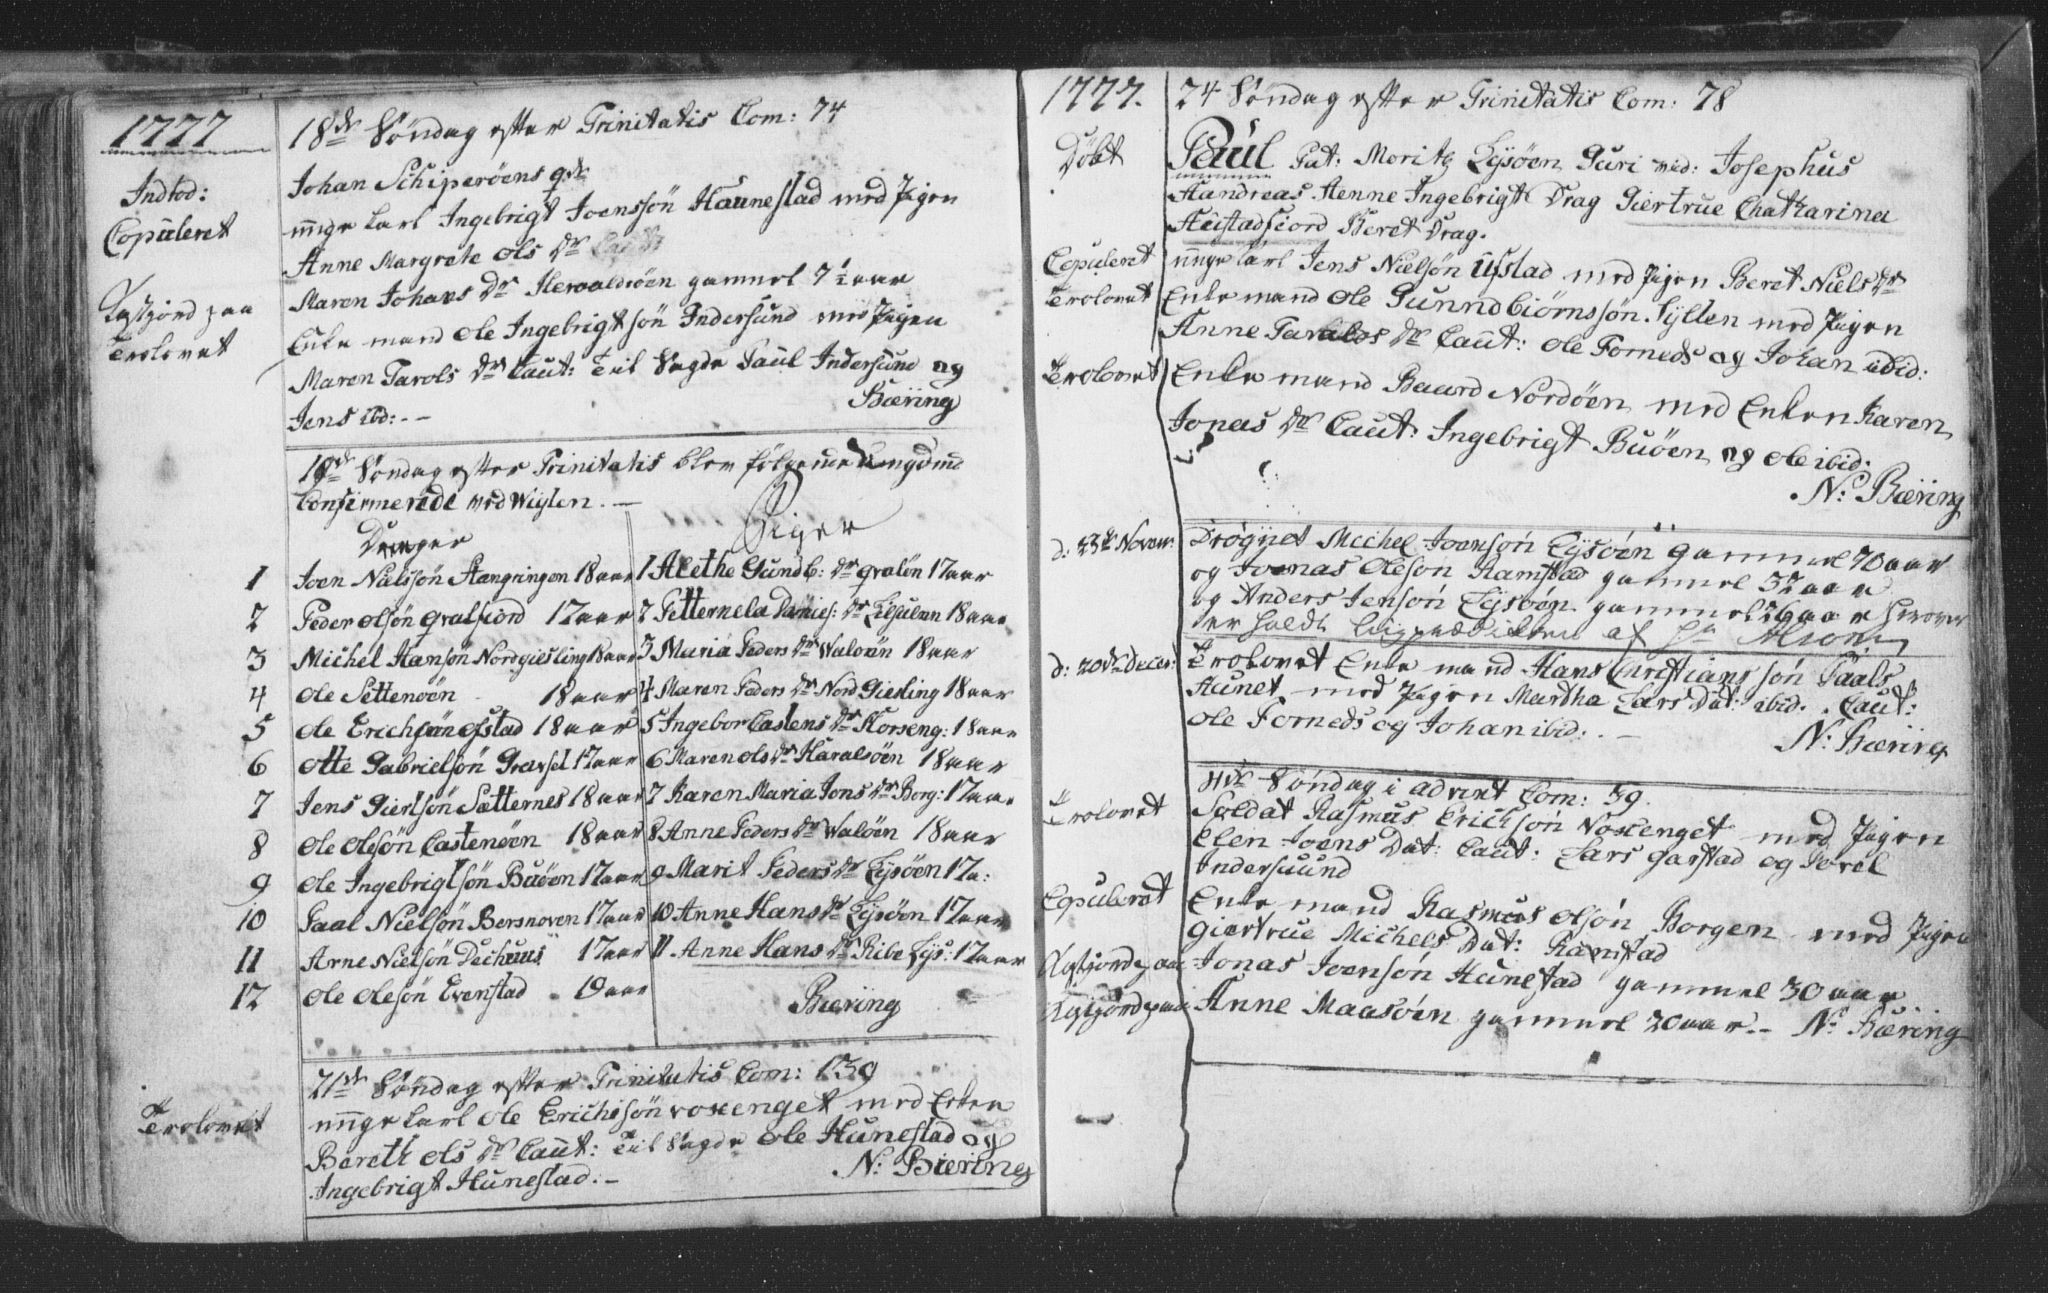 1777
18de Søndag efter Trinitatis Com: 74
Indtod: Johan Schiperøens qde
Copuleret unge karl Ingebrigt Joenssøn Haunestad med Pigen
Anne Margrete Ols Dr
Kastjord paa Maren Johans Dr Hervaldsøen gammel 7 1/2 aar
Trolovet Enke mand Ole Ingebrigtsøn Indersund med Pigen
Maren Tarols Dr Caut: Till Sagde Paul Indersund og
Jens ibd: - Bæring
19de Søndag efter Trinitatis blev følgende Ungdind
Confirmerede ved Wiglen. -
Drenger
1 Joen Nielssøn Stangringen 18 aar
2 Peder Olsøn Qvalfiord 17 aar
3 Michel Hansøn Nordgiesling 18 aar
4 Ole Settenøen 18 aar
5 Ole Erichsøn Ofstad 18 aar
6 Otte Gabrielsøn Gravsel 17 aar
7 Jens Giertsøn Sætternes 18 aar
8 Ole Olsøn Castenøen 18 aar
9 Ole Ingebrigtsøn Buøen 17 aar
10 Paal Nielsøn Bersnoven 17 aar
11 Arne Nielsøn Dechuus 17 aar
12 Ole Olesøn Evenstad 19 aar
Piger
1 Alethe Gundb: Dr Qvaløn 17 aar
2 Petternela Daniels: Dr 18 aar
3 Maria Peders Dr Waløen 18 aar
4 Maren Peders Dr Nord Giesling 18 aar
5 Ingebor Castens Dr Korseng: 18 aar
6 Maren Ols Dr Haralsøen 18 aar
7 Karen Maria Jons Dr Borg: 17 aar
8 Anne Peders Dr Waløen 18 aar
9 Marit Peders Dr Lysøen 17 a:
10 Anne Hans Dr Lysøen 17 aar
11 Anne Hans Dr Ribe Lys: 17 aar
Bæring
21de Søndag efter Trinitatis Com: 139
Trolovet unge karl Ole Erichssøn voxenget med Enken
Bereth Ols Dr Caut: Till Sagde Ole Hunestad og
Ingebrigt Hunestad. - N: Bæring
1777. 24 Søndag efter Trinitatis Com: 78
Døbt Paul Pat: Moritz Lysøen Guri vid: Josephus
Handreas Henne Ingebrigt Drag Giertrue Chatharina
Heistadfiord Beret Drag.
Copuleret unge karl Jens Nielsøn Ufstad med Pigen Beret Niels Dr
Trolovet Enke mand Ole Gunndbiørnssøn Syllen med Pigen
Anne Taralds Dr Caut: Ole Forneds og Johan ibid:
Trolovet Enke mand Baard Nordøen med Enken Karen
Jonas Dr Caut: Ingebrigt Buøen og Ole ibid:
N: Bæring
d: 23de Novem: Drognet Michel Joensøn Lysøen gammel 70 aar
og Joenas Olesøn Ramstad gammel 32 aar
og Anders Jensøn Lysøen gammel 26 aar hvorover
er holdt af Hr
d: 20de Decem: Trolovet Enke mand Hans Christianssøn Paals
Hunet med Pigen Martha Lars Dat: ibid. Caut:
Ole Forneds og Johan ibid: - N: Bæring
4de Søndag i Advent Com: 59.
Trolovet Soldat Rasmus Erichsøn Voxenget med Pigen
Elen Joens Dat: Caut: Lars Garstad og Povel
Indersuund
Copuleret Enke mand Rasmus Olsøn Borgen med Pigen
Giertrue Michels Dat: Ramstad
Kastjord paa Jonas Joensøn Hunestad gammel 30 aar
Kastjord paa Anne Maasøen gammel 20 aar - N: Bæring